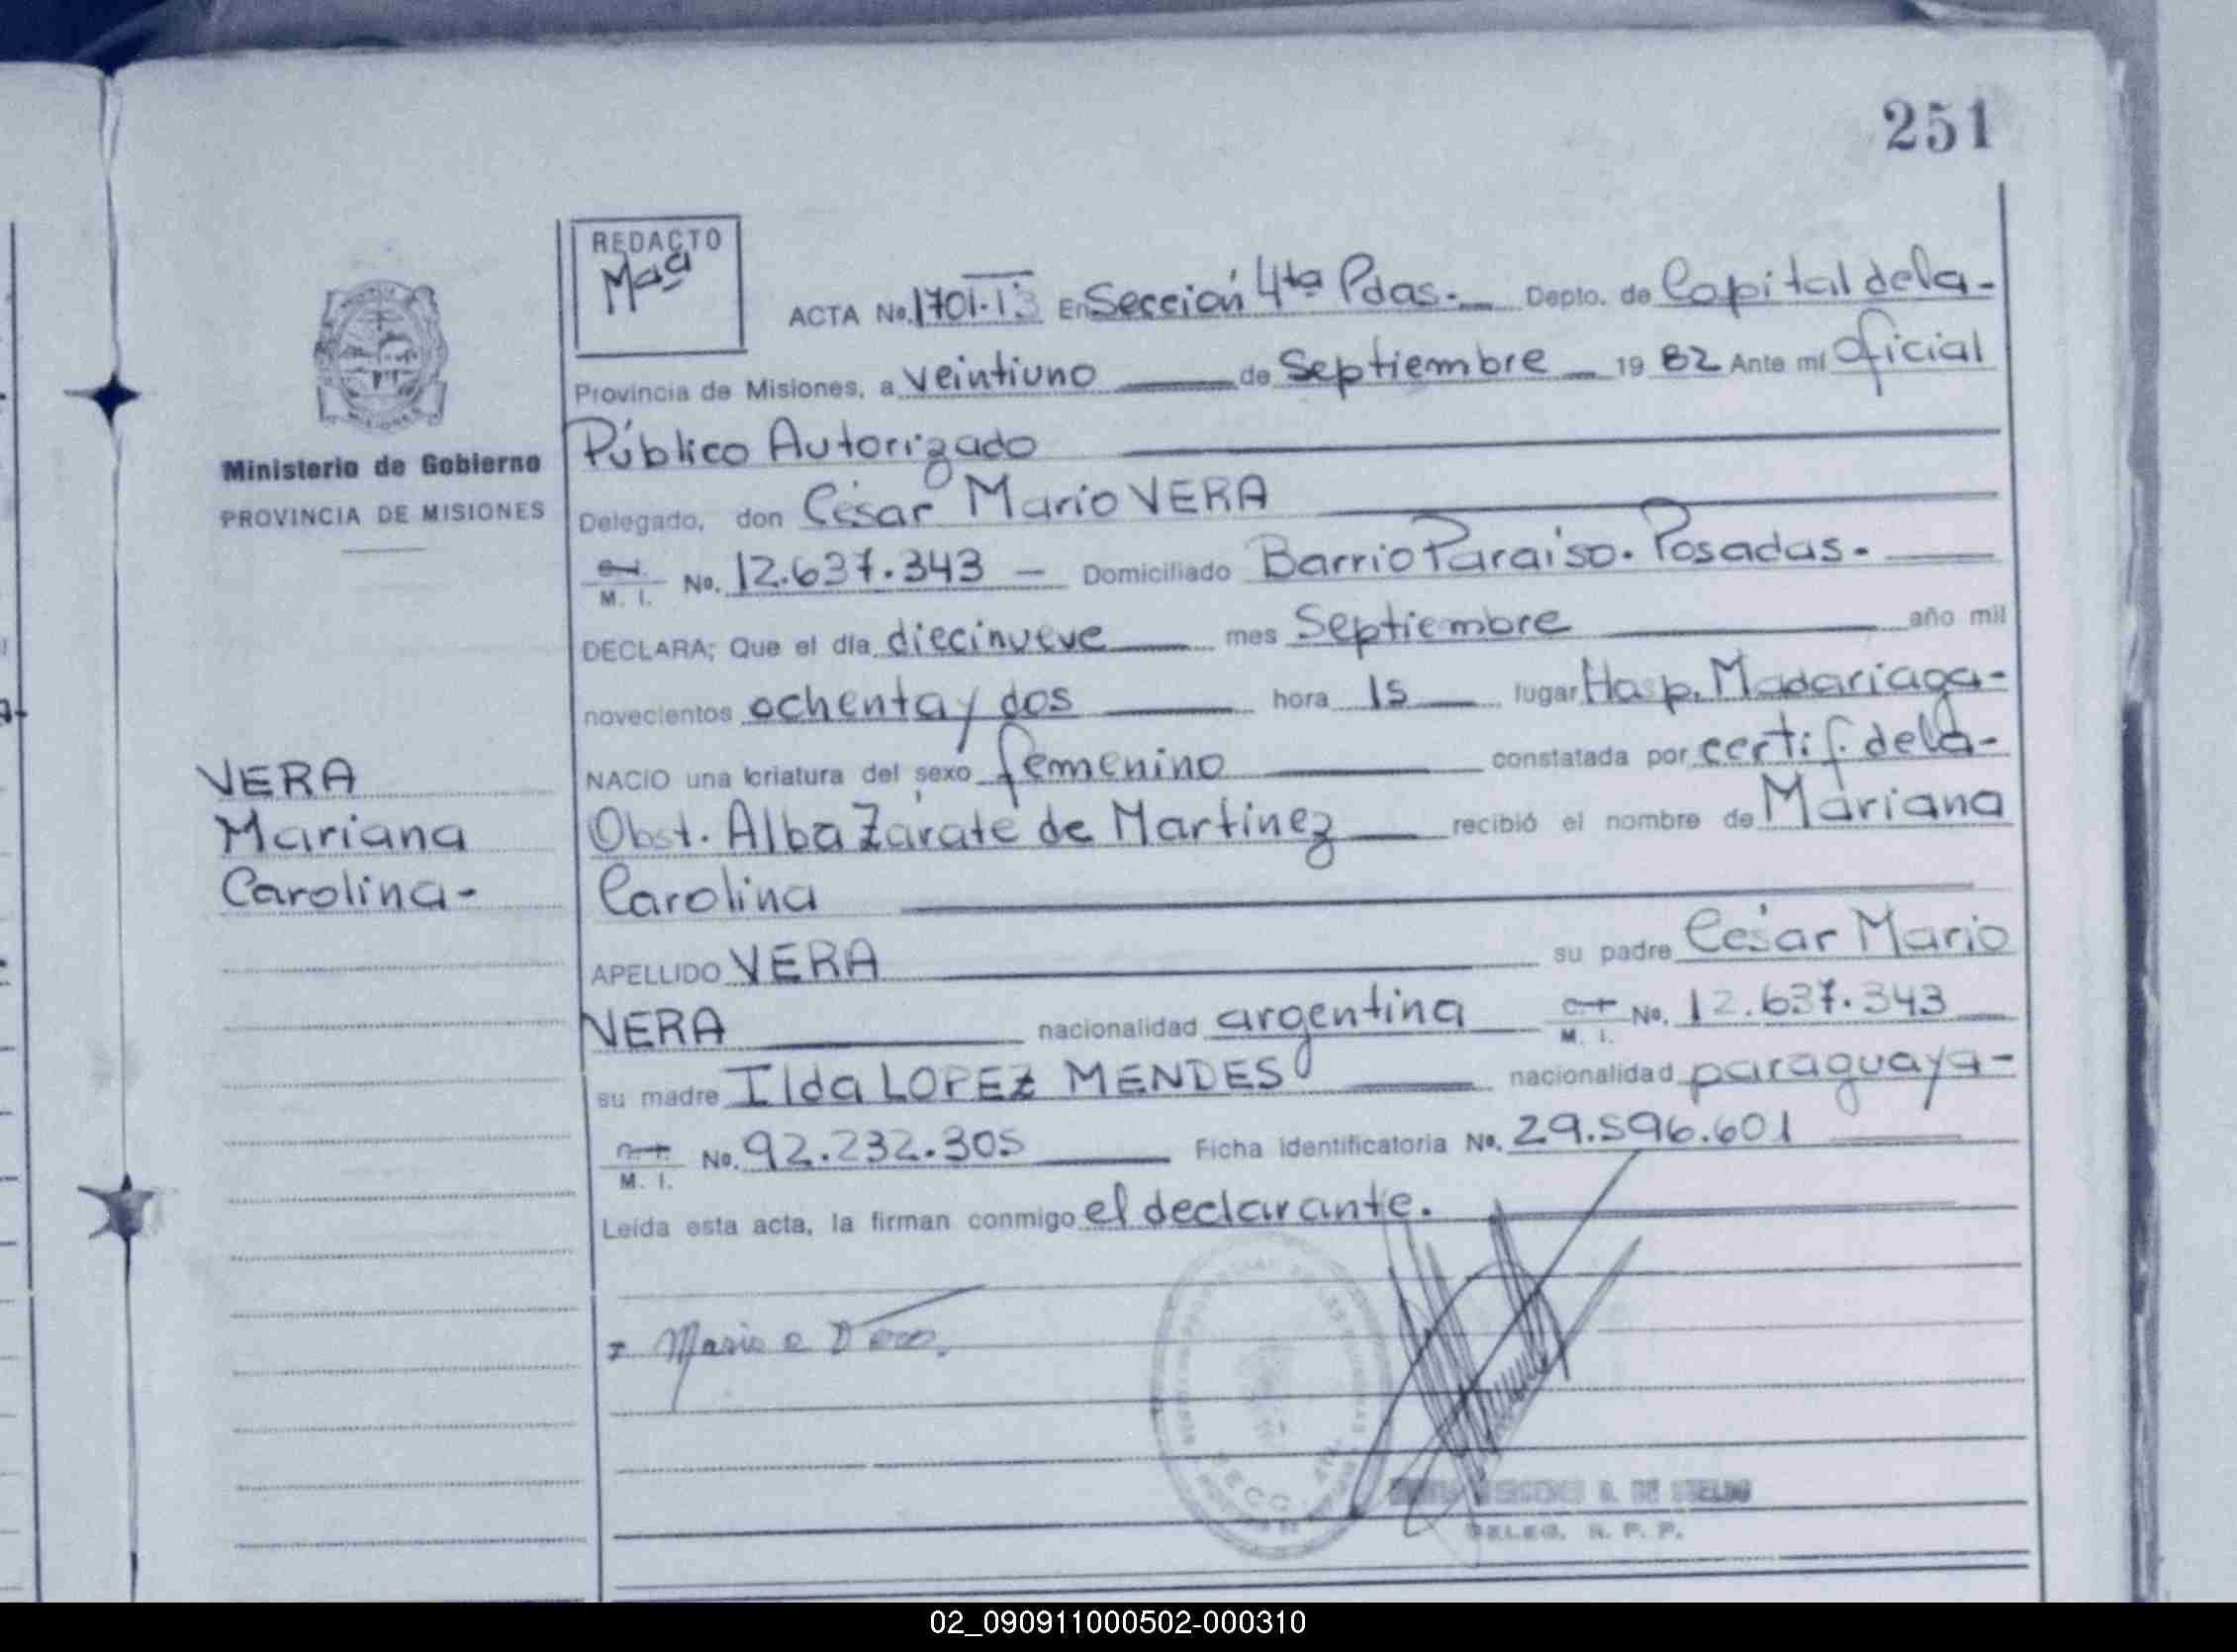 251
REDACTO
Maª
ACTA No. 1701-13 En Sección 4ta Pdas. Depto. de Capital de la-
Provincia de Misiones, a veintiuno de Septiembre 1982 Ante mí Oficial
Público Autorizado
Ministerio de Gobierno
PROVINCIA DE MISIONES
Delegado, don César Mario VERA
M. I. No. 12.637.343 - Domiciliado Barrio Paraíso. Posadas.
DECLARA; Que el día diecinueve mes Septiembre año mil
novecientos ochenta y dos hora 15 lugar Hosp. Madariaga-
NACIO una criatura del sexo femenino constatada por certif. de la-
VERA
Mariana
Carolina-
Obst. Alba Zárate de Martinez recibió el nombre de Mariana
Carolina
APELLIDO VERA su padre César Mario
VERA nacionalidad argentina M. I. No. 12.637.343
su madre Ilda LOPEZ MENDES nacionalidad paraguaya-
M. I. No. 92.232.305 Ficha identificatoria No. 29.596.601
Leída esta acta, la firman conmigo el declarante.
DELEG. R. P. P.
02_090911000502-000310